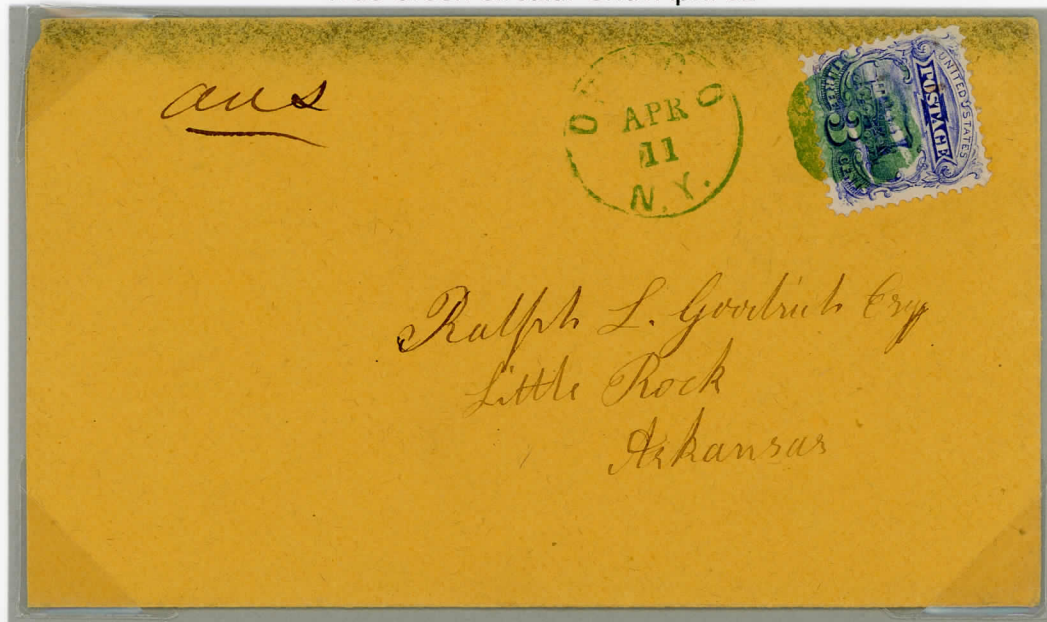 ans
O O
APR
11
N.Y.
UNITED STATES
POSTAGE
3
Ralph L. Goodrich Esq
Little Rock
Arkansas